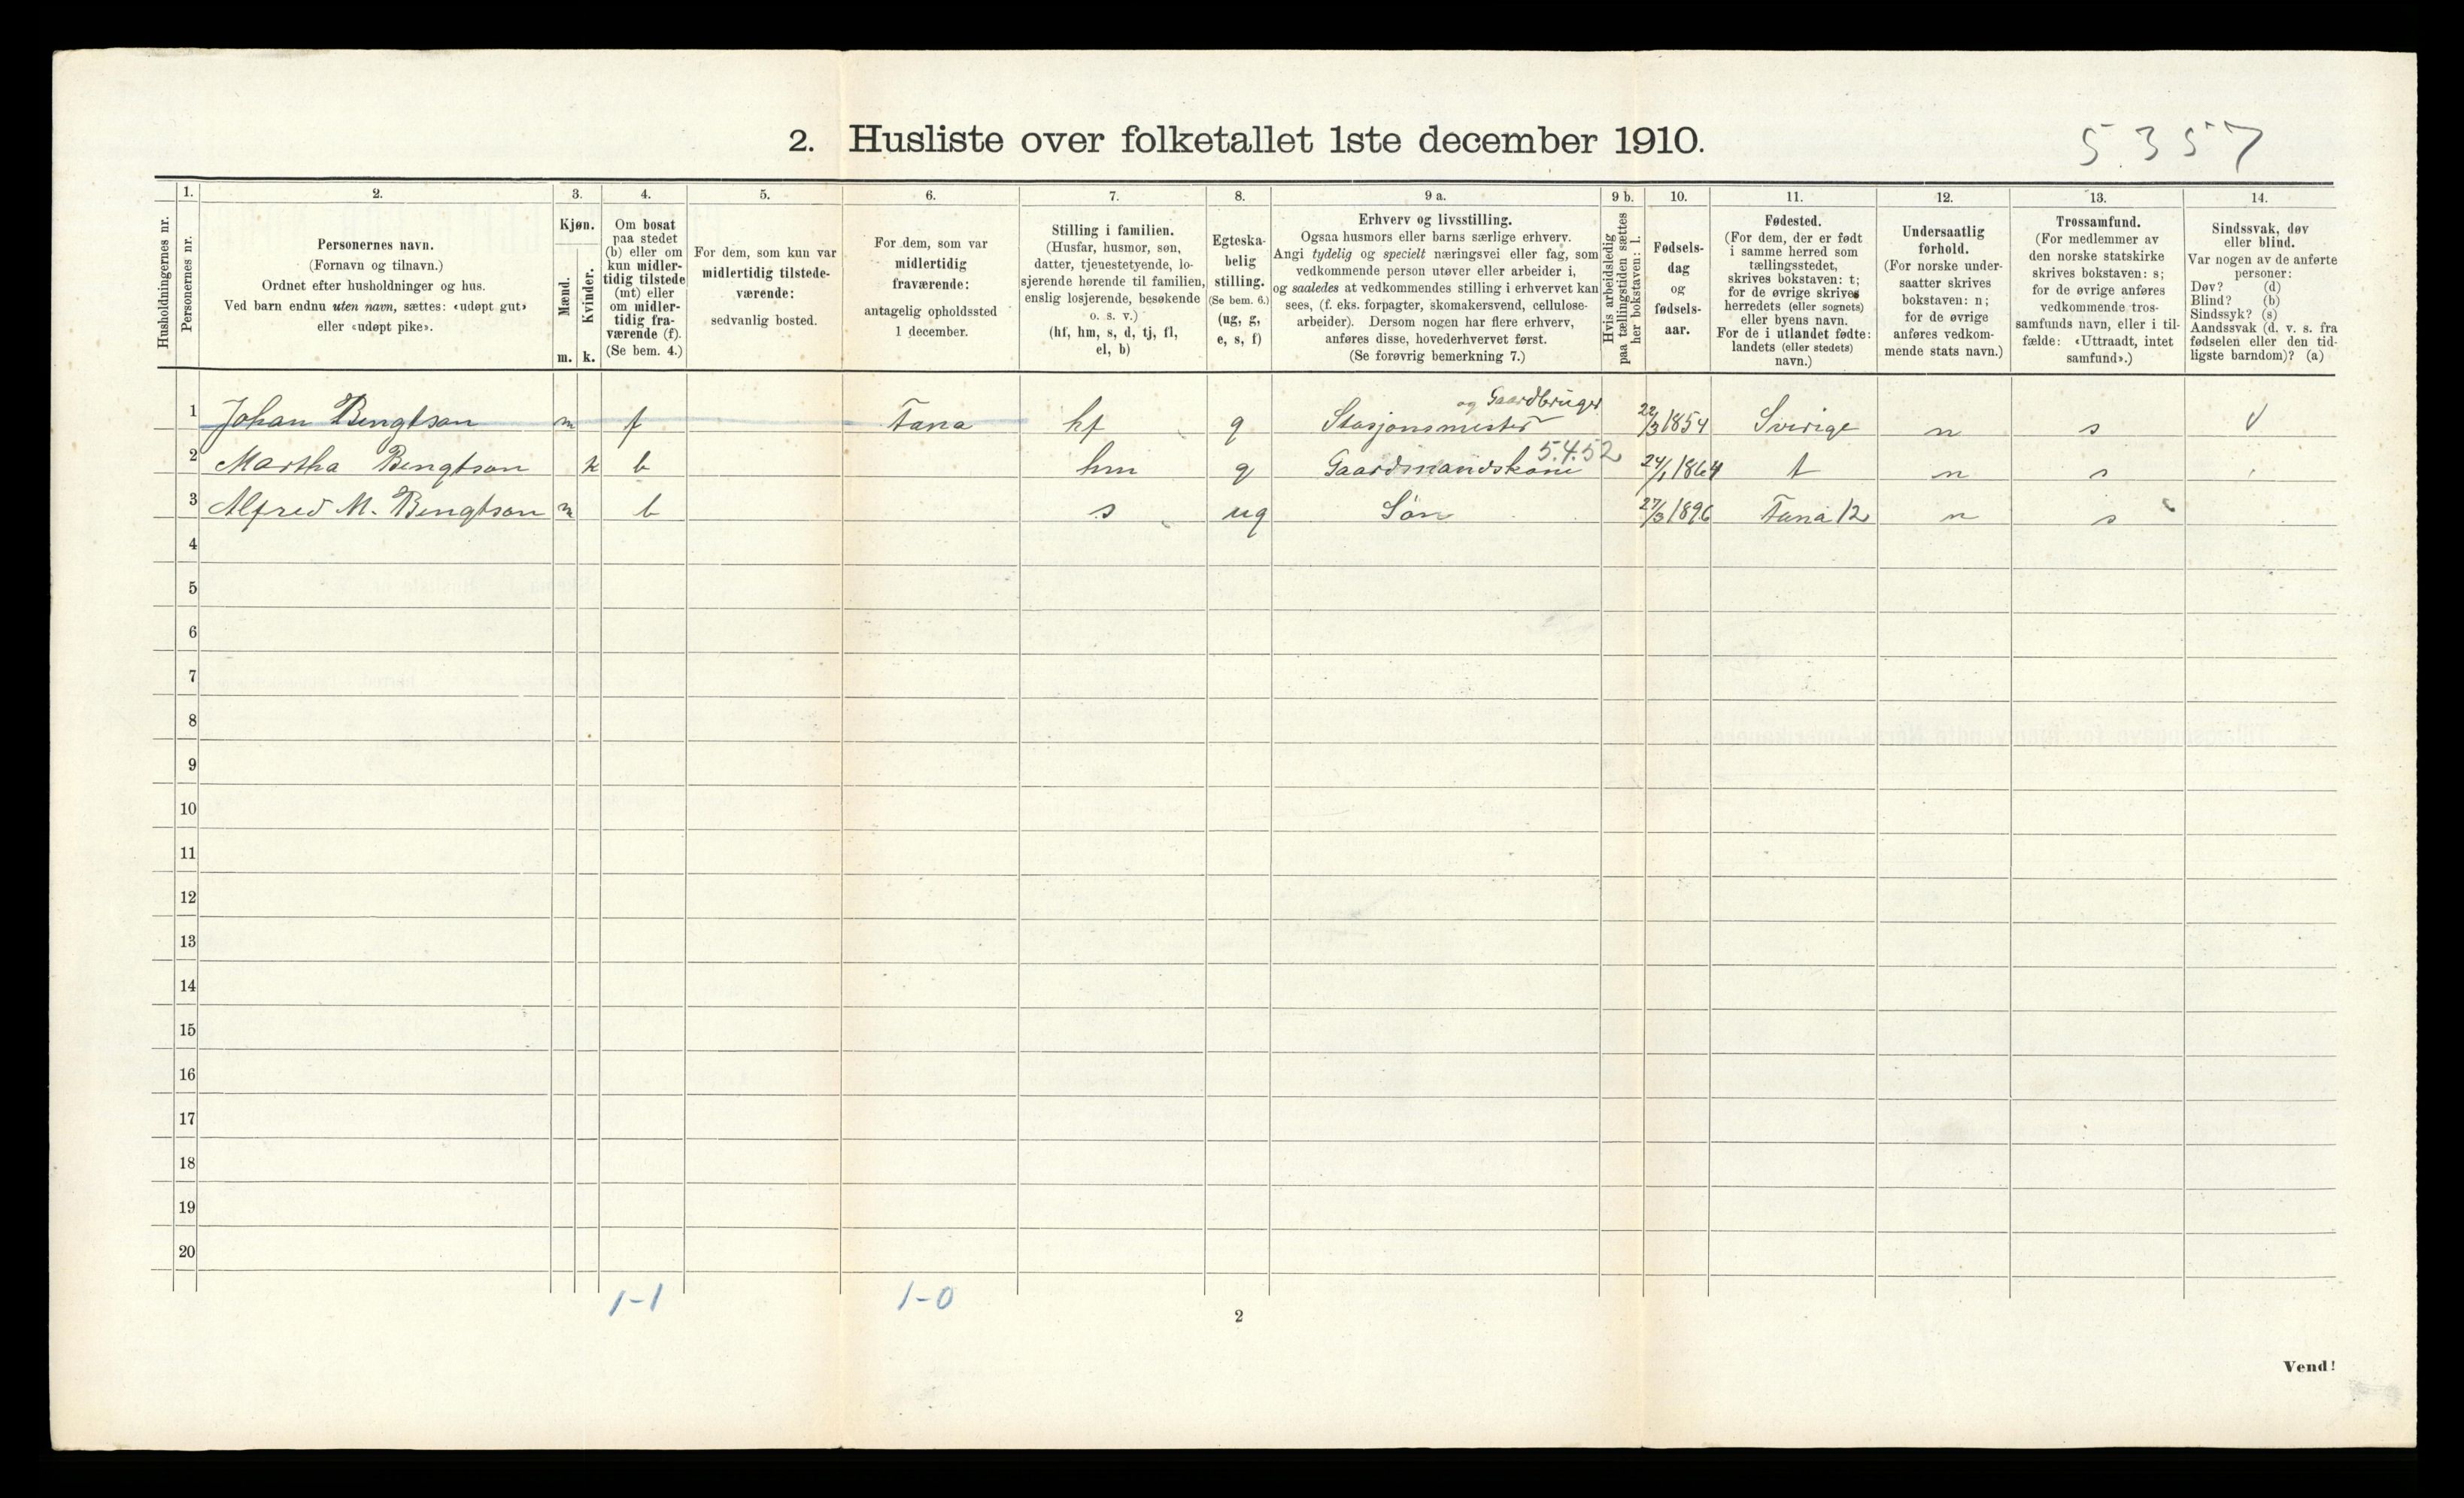 2. Husliste over folketallet 1ste december 1910.
5357
Husholdningernes nr.
1.
Personernes nr.
2.
Personernes navn.
(Fornavn og tilnavn.)
Ordnet efter husholdninger og hus.
Ved barn endnu uten navn, sættes: «udøpt gut»
eller «udøpt pike».
3.
Kjøn.
Mænd.
m.
Kvinder.
k.
4.
Om bosat
paa stedet
(b) eller om
kun midler-
tidig tilstede
(mt) eller
om midler-
tidig fra-
værende (f).
(Se bem. 4.)
5.
For dem, som kun var
midlertidig tilstede-
værende:
sedvanlig bosted.
6.
For dem, som var
midlertidig
fraværende:
antagelig opholdssted
1 december.
7.
Stilling i familien.
(Husfar, husmor, søn,
datter, tjenestetyende, lo-
sjerende hørende til familien,
enslig losjerende, besøkende
o. s. v.)
(hf, hm, s, d, tj, fl,
el, b)
8.
Egteska-
belig
stilling.
(Se bem. 6.)
(ug, g,
e, s, f)
9 a.
Erhverv og livsstilling.
Ogsaa husmors eller barns særlige erhverv.
Angi tydelig og specielt næringsvei eller fag, som
vedkommende person utøver eller arbeider i,
og saaledes at vedkommendes stilling i erhvervet kan
sees, (f. eks. forpagter, skomakersvend, cellulose-
arbeider). Dersom nogen har flere erhverv,
anføres disse, hovederhvervet først.
(Se forøvrig bemerkning 7.)
9 b.
Hvis arbeidsledig
paa tællingstiden sættes
her bokstaven: l.
10.
Fødsels-
dag
og
fødsels-
aar.
11.
Fødested.
(For dem, der er født
i samme herred som
tællingsstedet,
skrives bokstaven: t;
for de øvrige skrives
herredets (eller sognets)
eller byens navn.
For de i utlandet fødte:
landets (eller stedets)
navn.)
12.
Undersaatlig
forhold.
(For norske under-
saatter skrives
bokstaven: n;
for de øvrige
anføres vedkom-
mende stats navn.)
13.
Trossamfund.
(For medlemmer av
den norske statskirke
skrives bokstaven: s;
for de øvrige anføres
vedkommende tros-
samfunds navn, eller i til-
fælde: «Uttraadt, intet
samfund».)
14.
Sindssvak, døv
eller blind.
Var nogen av de anførte
personer:
Døv? (d)
Blind? (b)
Sindssyk? (s)
Aandssvak (d. v. s. fra
fødselen eller den tid-
ligste barndom)? (a)
og Gaardbruger
1 Johan Bengtson m f Tana hf g Stasjonsmester 22/3 1854 Sverige n s
5.4.52
2 Martha Bengtson k b hm g Gaardmandskone 24/1 1864 t n s
3 Alfred M. Bengtson m b s ug Søn 27/3 1896 Tana 12 n s
4
5
6
7
8
9
10
11
12
13
14
15
16
17
18
19
20
1-1 1-0
2
Vend!